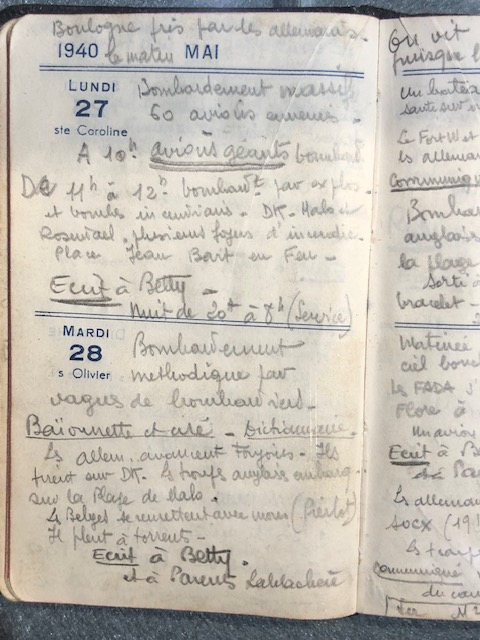 Boulogne pris par les allemands.
1940 le matin MAI
LUNDI
27
ste Caroline
Bombardement massif
60 avions ennemis.
A 10h avions géants bombard
De 11h à 12h bombardt par explos
et bombes incendiaires. DK. Malo et
Rosendael. plusieurs foyers d'incendie.
Place Jean Bart en Feu -
Ecrit à Betty -
Nuit de 20h à 8h (Service)
MARDI
28
s Olivier
Bombardement
méthodique par
vagues de bombardiers.
Baïonnette et cité - Dictionnaire.
Les allem. avancent toujours. Ils
tirent sur DK. Les troupes anglais embarq.
sur la Plage de Malo.
Les Belges se remettent avec nous (Pierlot)
Il pleut à torrents -
Ecrit à Betty.
et à Parents
On vit
puisque l
saute sur
Le Fort W et
les alleman
Communiqu
Bombar
anglais
la plage
Sorti à
bracelet -
Matinée
ciel bouc
Les FADA
Flore à
Un avion
Ecrit à Be
et à Pa
Les alleman
SOCX (19
Les troup
Communiqué
du